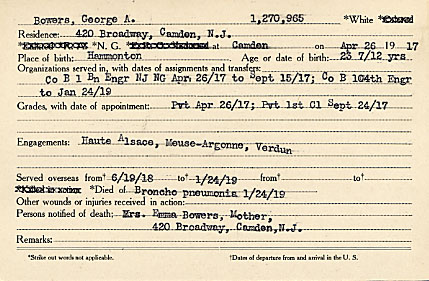 Bowers, George A. 1,270,965 *White
Residence: 420 Broadway, Camden, N.J.
*N. G. at Camden on Apr 26 19 17
Place of birth: Hammonton Age or date of birth: 23 7/12 yrs
Organizations served in, with dates of assignments and transfers:
Co B 1 Bn Engr NJ NG Apr 26/17 to Sept 15/17; Co B 104th Engr
to Jan 24/19
Grades, with date of appointment: Pvt Apr 26/17; Pvt 1st Cl Sept 24/17
Engagements: Haute Alsace, Meuse-Argonne, Verdun
Served overseas from† 6/19/18 to† 1/24/19 from† to†
*Died of Broncho pneumonia 1/24/19
Other wounds or injuries received in action:
Persons notified of death: Mrs. Emma Bowers, Mother,
420 Broadway, Camden, N.J.
Remarks:
*Strike out words not applicable. †Dates of departure from and arrival in the U. S.